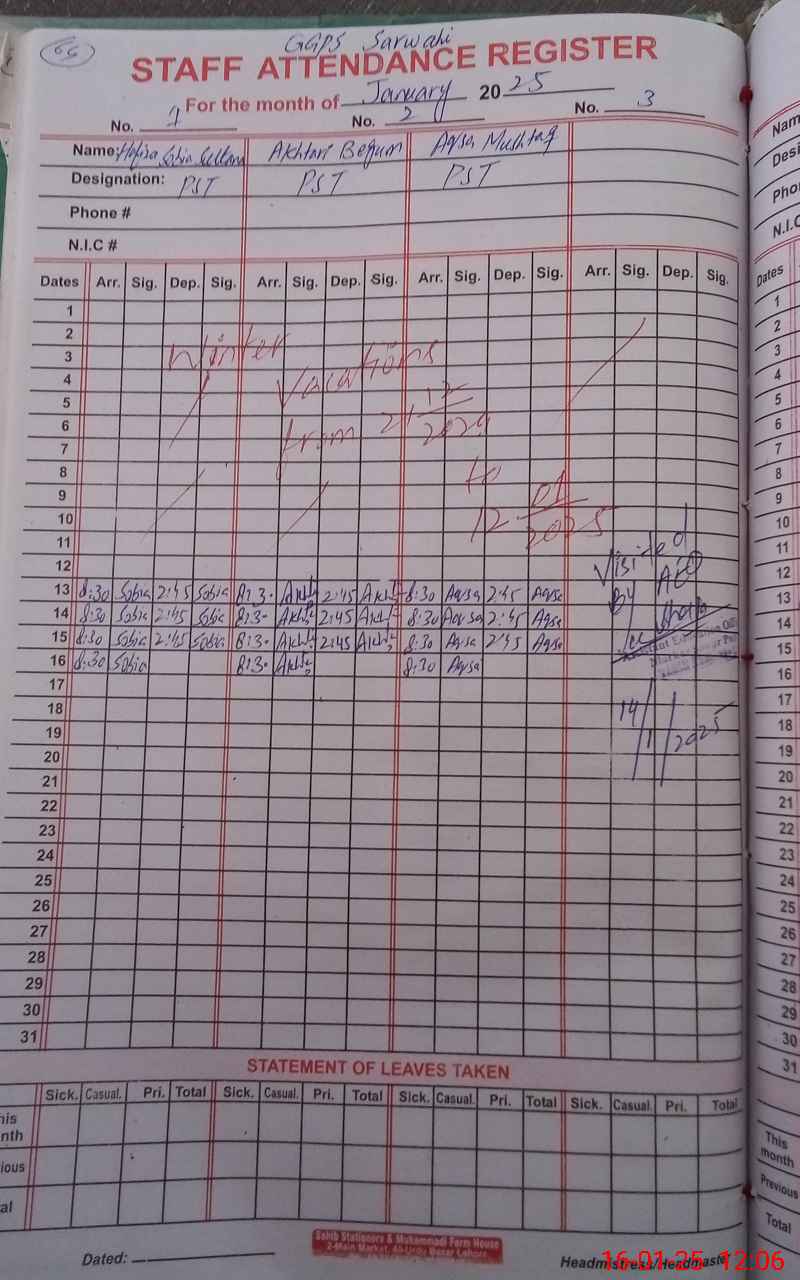 65
GGPS Sarwahi
STAFF ATTENDANCE REGISTER
For the month of January 2025
No. 1 No. 2 No. 3
Name: Hafiza Sobia Sultana Akhtari Begum Aqsa Mushtaq
Designation: PST PST PST
Phone #
N.I.C #
Dates Arr. Sig. Dep. Sig. Arr. Sig. Dep. Sig. Arr. Sig. Dep. Sig. Arr. Sig. Dep. Sig.
1
2
3
4
5
6
7
8
9
10
11
12
Winter
Vacations
from 21 12/2024
to
12 01/2025
13 8:30 Sobia 2:45 Sobia 8:30 Akht 2:45 Akht 8:30 Aqsa 2:45 Aqsa
14 8:30 Sobia 2:45 Sobia 8:30 Akht 2:45 Akht 8:30 Aqsa 2:45 Aqsa
15 8:30 Sobia 2:45 Sobia 8:30 Akht 2:45 Akht 8:30 Aqsa 2:45 Aqsa
16 8:30 Sobia 8:30 Akht 8:30 Aqsa
Visited
By AEO
14/1/2025
17
18
19
20
21
22
23
24
25
26
27
28
29
30
31
STATEMENT OF LEAVES TAKEN
Sick. Casual. Pri. Total Sick. Casual. Pri. Total Sick. Casual. Pri. Total Sick. Casual. Pri. Total
his
nth
ious
al
Sahib Stationers & Muhammadi Farm House
2-Main Market, 40-Urdu Bazar Lahore
Dated:
Headmistress/Headmaster
16-01-25 12:06
Nam
Desi
Pho
N.I.C
Dates
1
2
3
4
5
6
7
8
9
10
11
12
13
14
15
16
17
18
19
20
21
22
23
24
25
26
27
28
29
30
31
This
month
Previous
Total